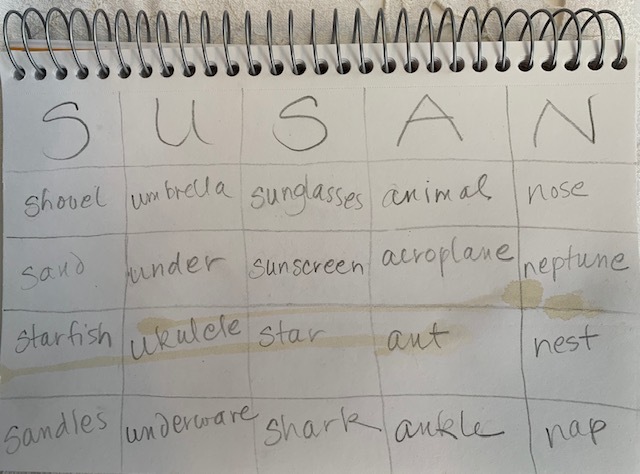 S U S A N
shovel umbrella sunglasses animal nose
sand under sunscreen acroplane neptune
starfish ukulele star ant nest
sandles underware shark ankle nap